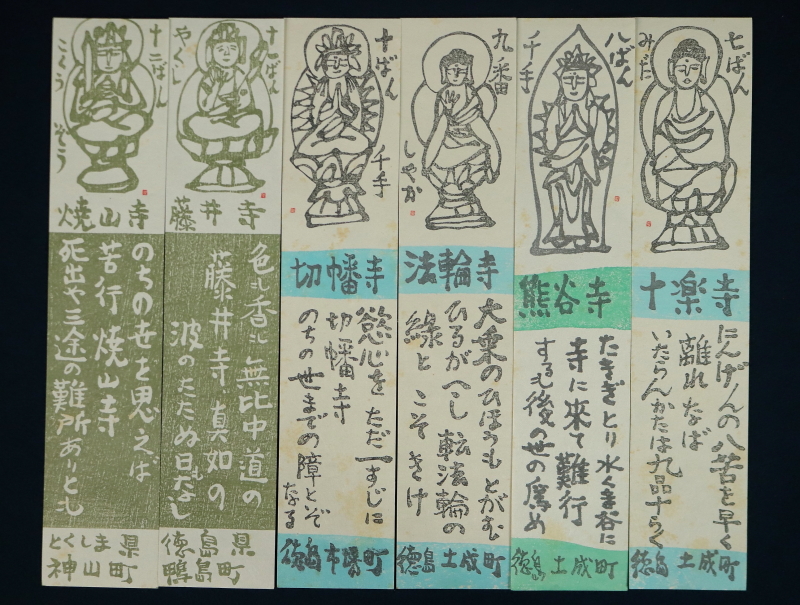 七ばん
みだ
十楽寺
にんげんの八苦を早く
離れなば
いたらんかたは九品十らく
徳島 土成町
八ばん
千手
熊谷寺
たきぎとり水くま谷に
寺に来て難行
するも後の世の為め
徳島 土成町
九ノ番
しゃか
法輪寺
大乗のひほうもとがむ
ひるがへし転法輪の
縁とこそきけ
徳島 土成町
十ばん
千手
切幡寺
慾心をただ一すじに
切幡寺
のちの世までの障とぞなる
徳島市場町
十一ばん
やくし
藤井寺
色も香も無比中道の
藤井寺真如の
波のたたぬ日もなし
徳島県
鴨島町
十二ばん
こくうぞう
焼山寺
のちの世を思えば
苦行焼山寺
死出や三途の難所ありとも
とくしま県
神山町